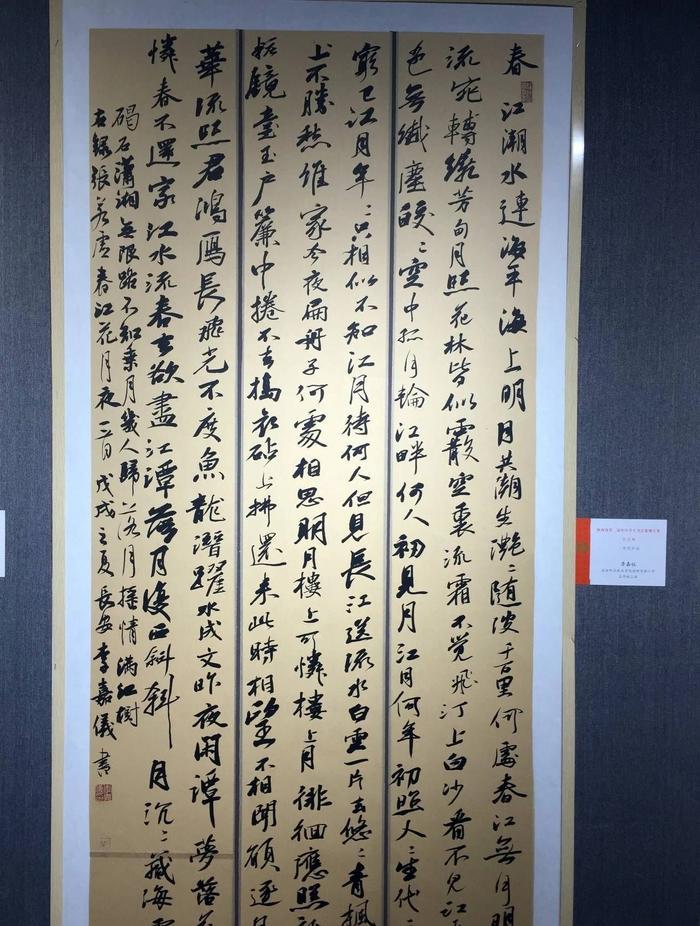 春江潮水連海平海上明月共潮生灧〻随波千万里何處春江無月明
流宛轉繞芳甸月照花林皆似霰空裏流霜不覺飛汀上白沙看不見江
色無纖塵皎〻空中孤月輪江畔何人初見月江月何年初照人〻生代〻
窮已江月年〻只相似不知江月待何人但見長江送流水白雲一片去悠〻青楓
上不勝愁誰家今夜扁舟子何處相思明月樓上可憐樓上月徘徊應照
妝鏡臺玉户簾中捲不去搗衣砧上拂還来此時相望不相聞願逐月
華流照君鴻雁長飛光不度魚龍潛躍水成文昨夜閑潭夢落花
憐春不還家江水流春去欲盡江潭落月復西斜斜月沉〻藏海霧
碣石瀟湘無限路不知乘月幾人歸落月摇情滿江樹
右録張若虚春江花月夜一首戊戌之夏長安李嘉儀書